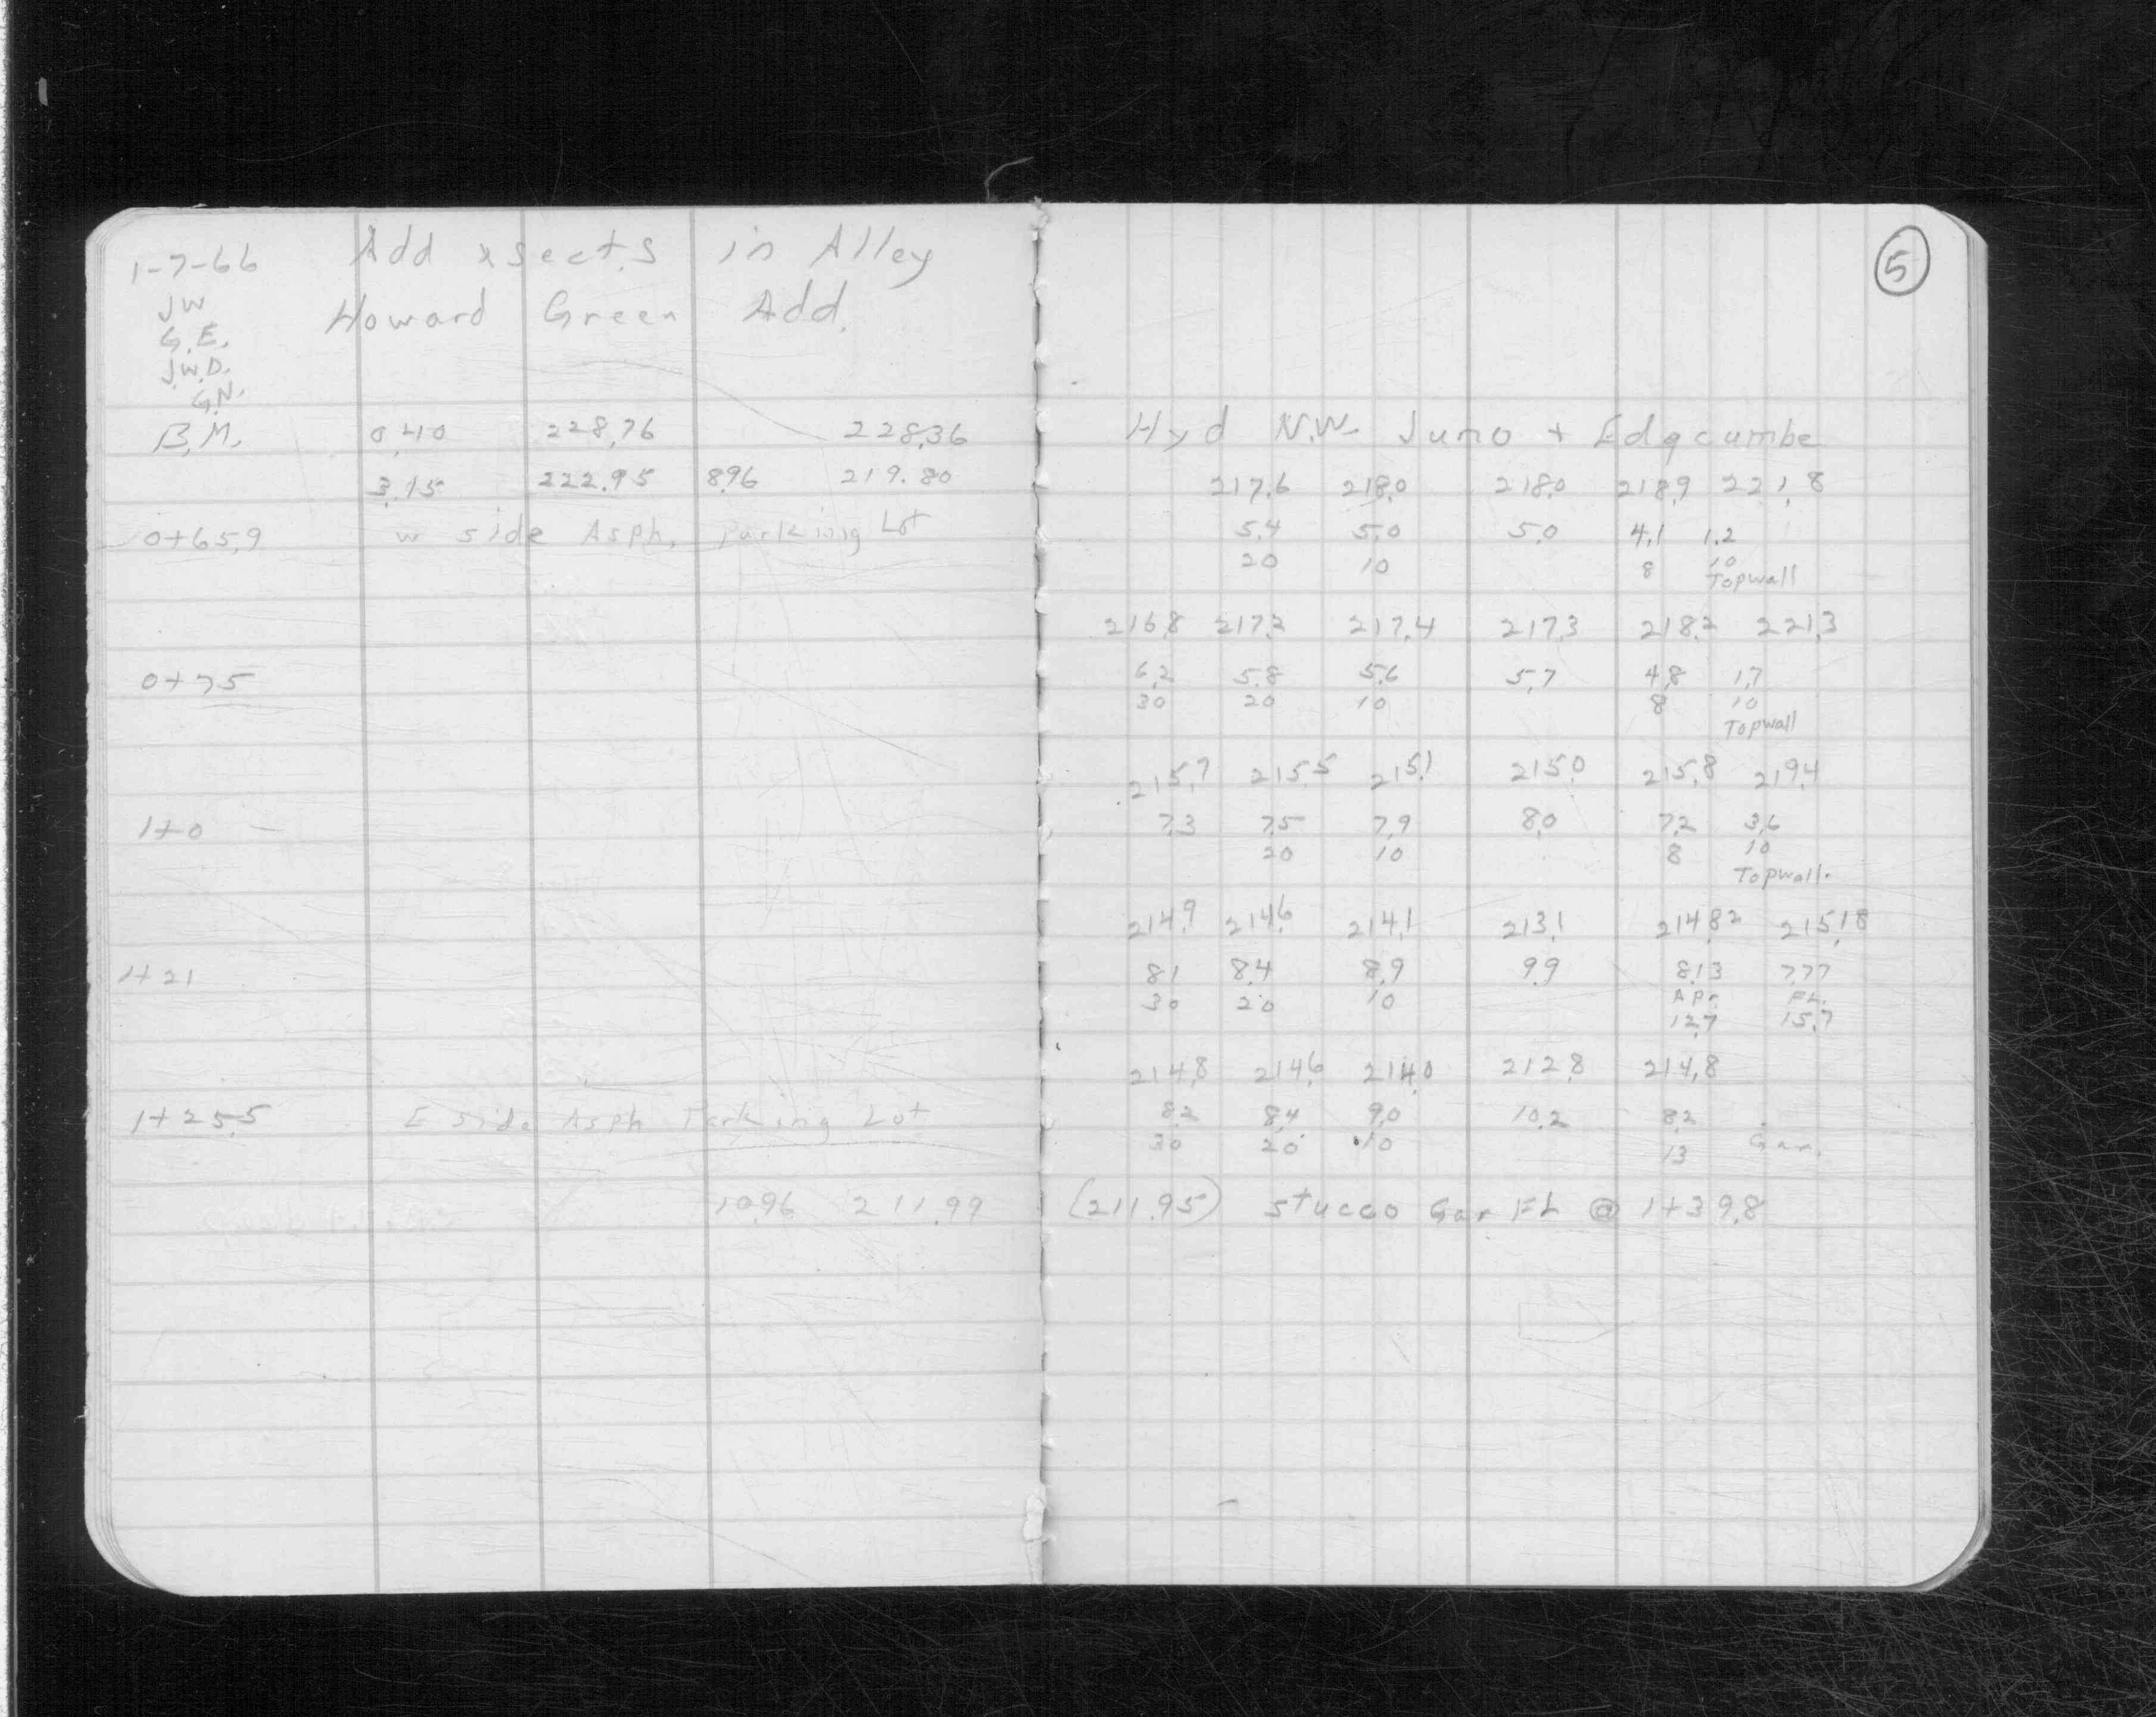 1-7-66 Add xsects in Alley
JW Howard Green Add.
G.E.
J.W.D.
G.N.
B.M. 0.40 228.76 228.36
3.15 222.95 8.96 219.80
0+65.9 w side Asph. parking Lot
0+75
1+0 —
1+21
1+25.5 E side Asph Parking Lot
10.96 211.99
5
Hyd N.W. Juno + Edgcumbe
217.6 218.0 218.0 218.9 221.8
5.4 5.0 5.0 4.1 1.2
20 10 8 10
Topwall
216.8 217.2 217.4 217.3 218.2 221.3
6.2 5.8 5.6 5.7 4.8 1.7
30 20 10 8 10
Topwall
215.7 215.5 215.1 215.0 215.8 219.4
7.3 7.5 7.9 8.0 7.2 3.6
20 10 8 10
Topwall.
214.9 214.6 214.1 213.1 214.82 215.18
8.1 8.4 8.9 9.9 8.13 7.77
30 20 10 Apr. FL.
12.7 15.7
214.8 214.6 214.0 212.8 214.8
8.2 8.4 9.0 10.2 8.2
30 20 10 13 Gar.
(211.95) stucco Gar FL @ 1+39.8